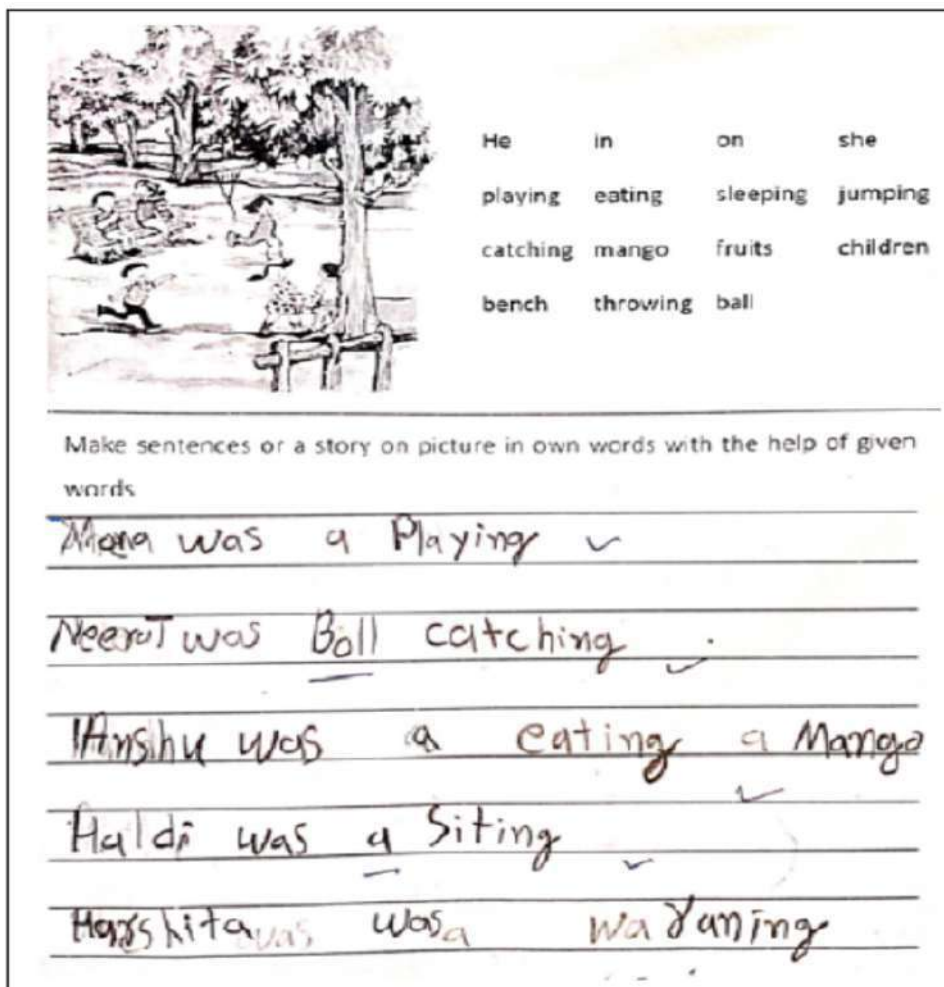 He in on she
playing eating sleeping jumping
catching mango fruits children
bench throwing ball
Make sentences or a story on picture in own words with the help of given
words
Mana was a Playing
was Boll catching
Anshu was a eating a Mango
Haldi was a Siting
Harshita was was a wa runing